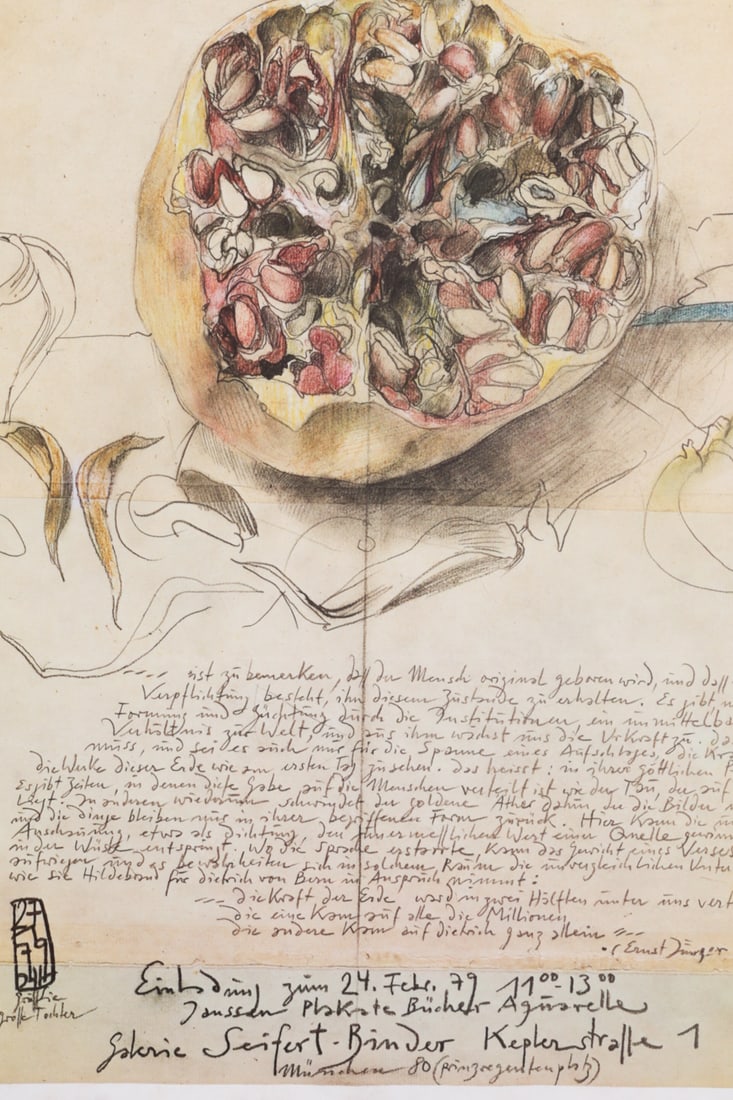 ---- ist zu bemerken, daß der Mensch original geboren wird, und daß
Verpflichtung besteht, ihn diesem Zustande zu erhalten. Es gibt
Formung und Züchtung durch die Institutionen, ein unmittelba
Verhältnis zur Welt, und aus ihm wächst uns die Urkraft zu. da
muss, und sei es auch nur für die Spanne eines Aufschlages, die Kra
die Werke dieser Erde wie am ersten Tag zu sehen. das heisst: in ihrer göttlichen
Es gibt Zeiten, in denen diese Gabe auf die Menschen verteilt ist wie der Tau, der auf
liegt. In anderen wiederum schwindet der goldene Äther dahin, der die Bilder
und die dinge bleiben nur in ihrer begriffenen Form zurück. Hier kann die
Anschauung, etwa als Dichtung, den unermesslichen Wert einer Quelle gewinn
in der Wüste entspringt. Wo die Sprache erstarrte, kann das Gewicht eines Verses
aufwiegen und es bewahrheiten sich in solchem Raume die unvergleichlichen
wie sie Hildebrand für dietrich von Bern in Anspruch nimmt:
--- die Kraft der Erde ward in zwei Hälften unter uns vert
die eine kam auf alle die Millionen
die andere kam auf dietrich ganz allein ---
(Ernst Jünger
große Tochter
Einladung zum 24. Febr. 79 11⁰⁰-13⁰⁰
Janssen Plakate Bücher Aquarelle
Galerie Seifert-Binder Keplerstraße 1
München 80 (prinzregentenplatz)